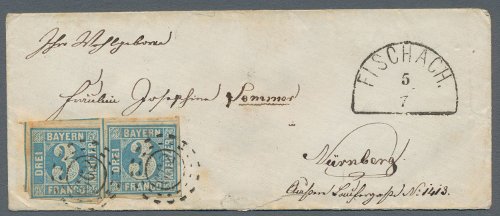 Ihr Wohlgeboren
FISCHACH.
5
7
Fräulein Josephine Sommer
BAYERN
DREI
3
KREUZER
FRANCO
BAYERN
DREI
3
KREUZER
FRANCO
Nürnberg
Äußere Laufergasse No. 1413.